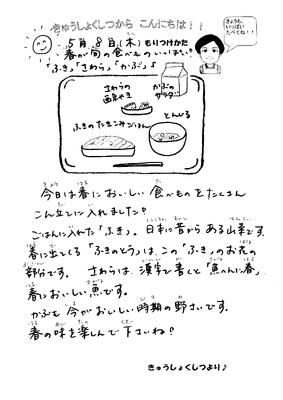 きゅうしょくしつから こんにちは!!
5月8日(木) もりつけかた
春が旬の食べものいっぱい!
「ふき」「さわら」「かぶ」♪
きょうも、
いっぱい
たべてね!!
さわらの
西京やき
かぶの
サラダ
ふきのたきこみごはん
とんじる
今日は春においしい食べものをたくさん
こん立てに入れました!
ごはんに入れた「ふき」。日本に昔からある山菜です。
春に出てくる「ふきのとう」は、この「ふき」のお花の
部分です。 さわらは、漢字で書くと「魚へんに春」、
春においしい魚です。
かぶも今がおいしい時期の野さいです。
春の味を楽しんで下さいね!
きゅうしょくしつより♪